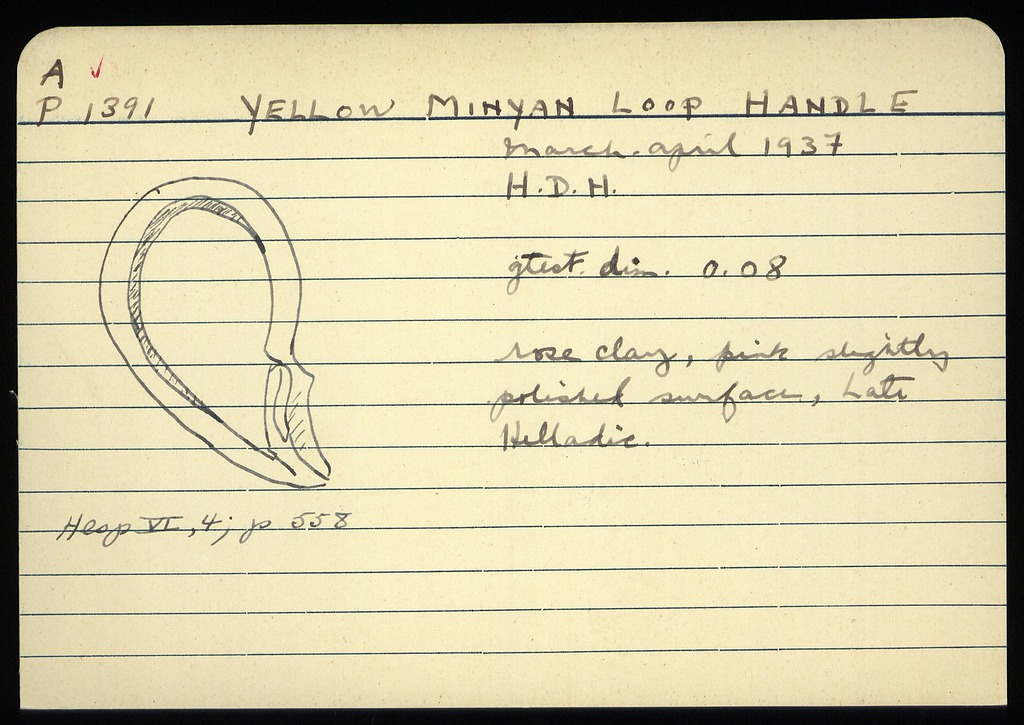 A ✓
P 1391 YELLOW MINYAN LOOP HANDLE
March-April 1937
H.D.H.
gtest. dim. 0.08
rose clay, pink slightly
polished surface, Late
Helladic.
Hesp VI, 4; p 558